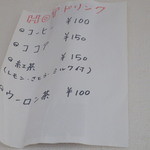 ドリンク
コーヒー ¥100
ココア ¥150
紅茶 ¥150
(レモン・ミルク付)
ウーロン茶 ¥100